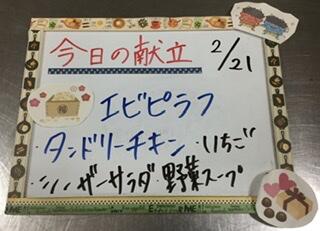 今日の献立 2/21
エビピラフ
・タンドリーチキン ・いちご
・シーザーサラダ ・野菜スープ
福